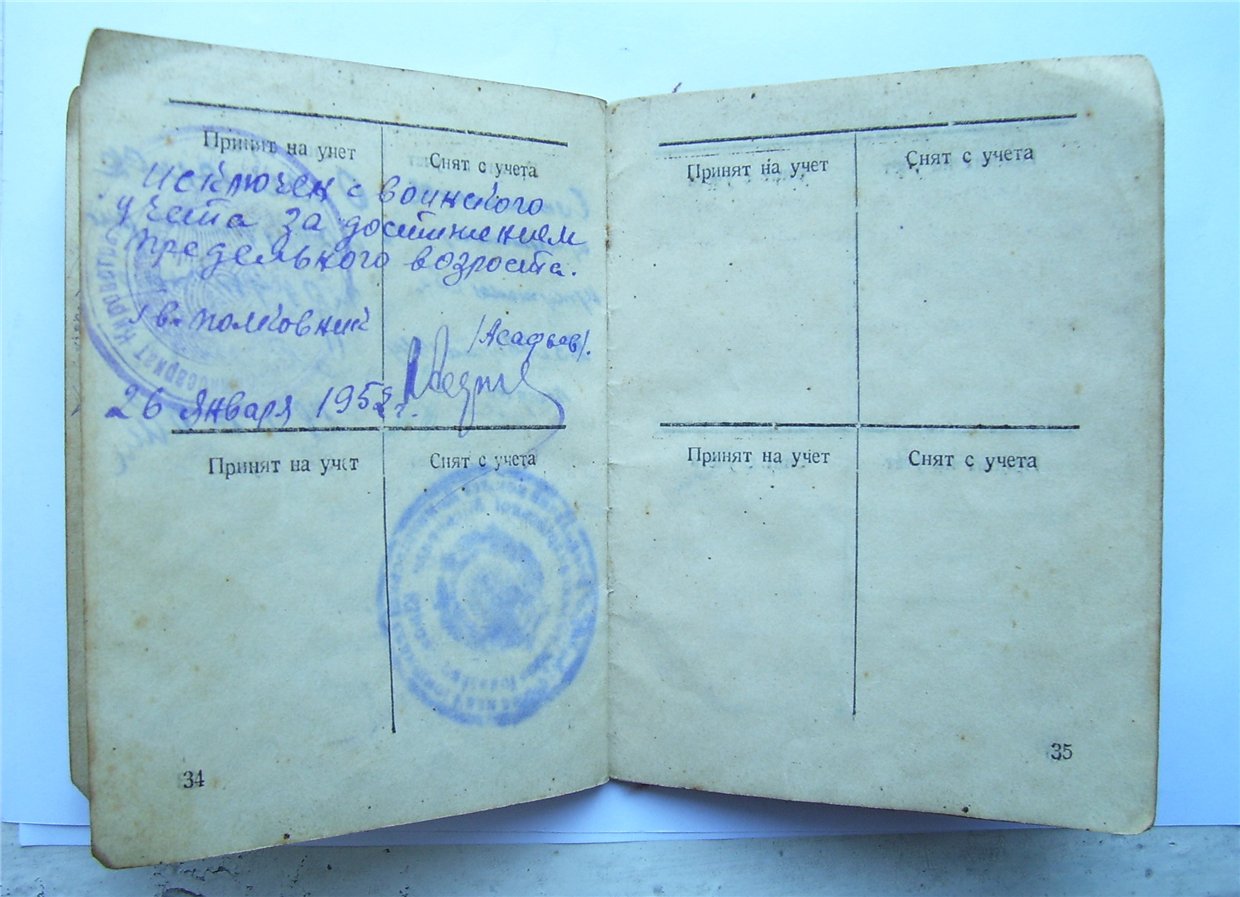 Принят на учет
Снят с учета
исключен с воинского
учета за достинением
предельного возроста.
полковник
/Асафьев/.
26 января 195
Принят на учет
Снят с учета
34
Принят на учет
Снят с учета
Принят на учет
Снят с учета
35